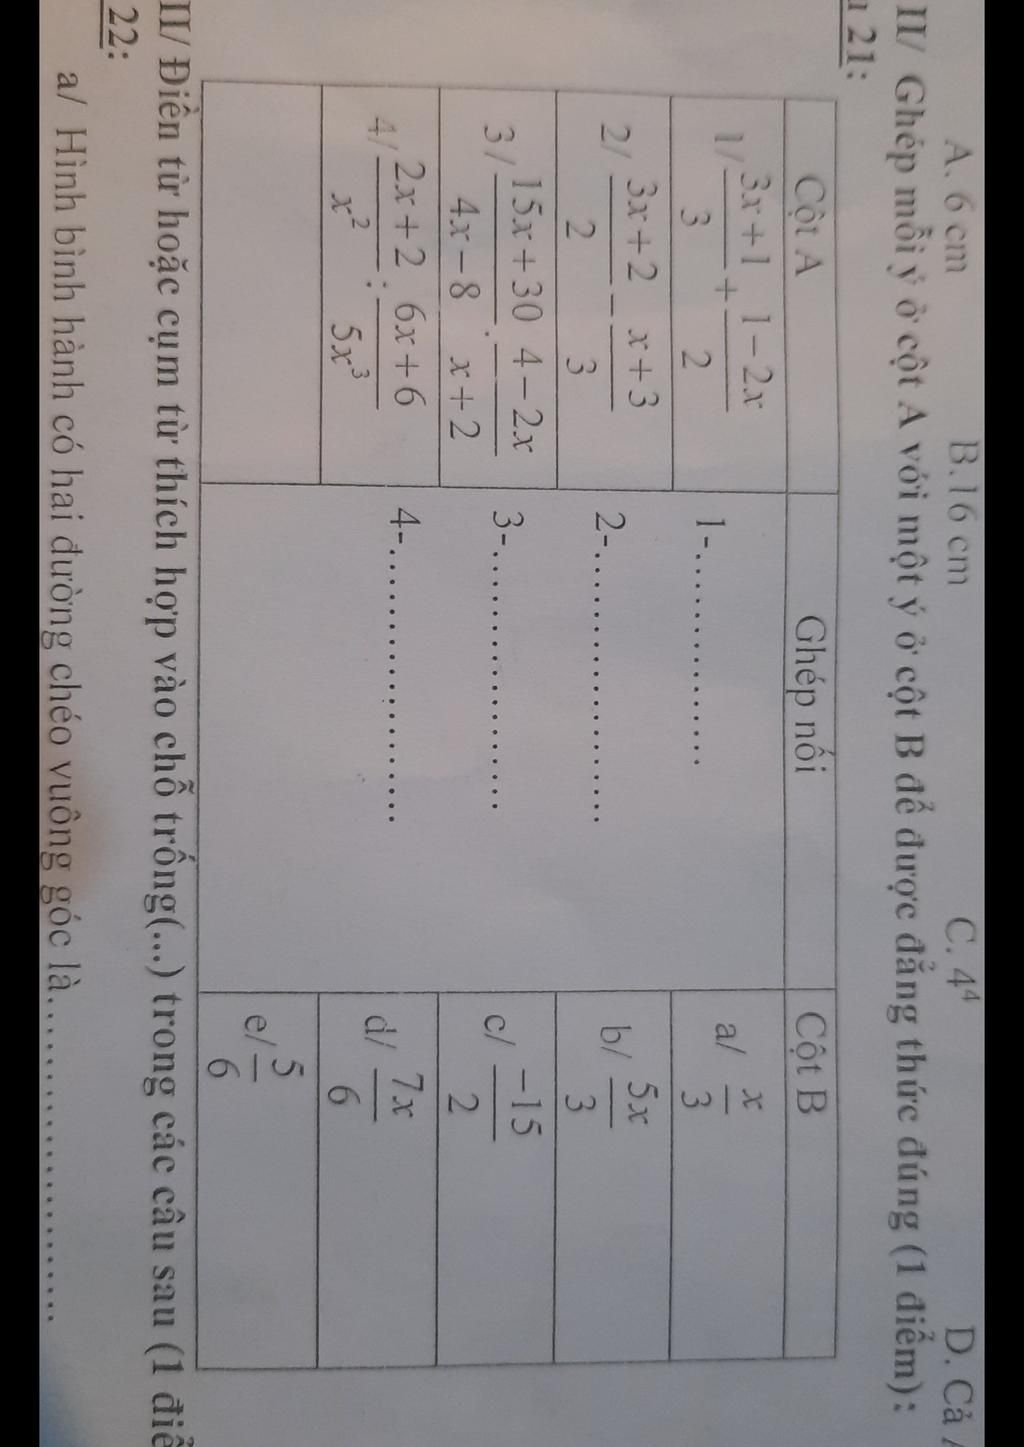 A. 6 cm B.16 cm C. 4⁴ D. Cả
II/ Ghép mỗi ý ở cột A với một ý ở cột B để được đẳng thức đúng (1 điểm):
21:
Cột A Ghép nối Cột B
1/ (3x+1)/3 + (1−2x)/2 1-............ a/ x/3
2/ (3x+2)/2 − (x+3)/3 2-.................. b/ 5x/3
3/ (15x+30)/(4x−8) . (4−2x)/(x+2) 3-.................. c/ −15/2
4/ (2x+2)/x² : (6x+6)/5x³ 4-.................. d/ 7x/6
e/ 5/6
II/ Điền từ hoặc cụm từ thích hợp vào chỗ trống(...) trong các câu sau (1
22:
a/ Hình bình hành có hai đường chéo vuông góc là..............................